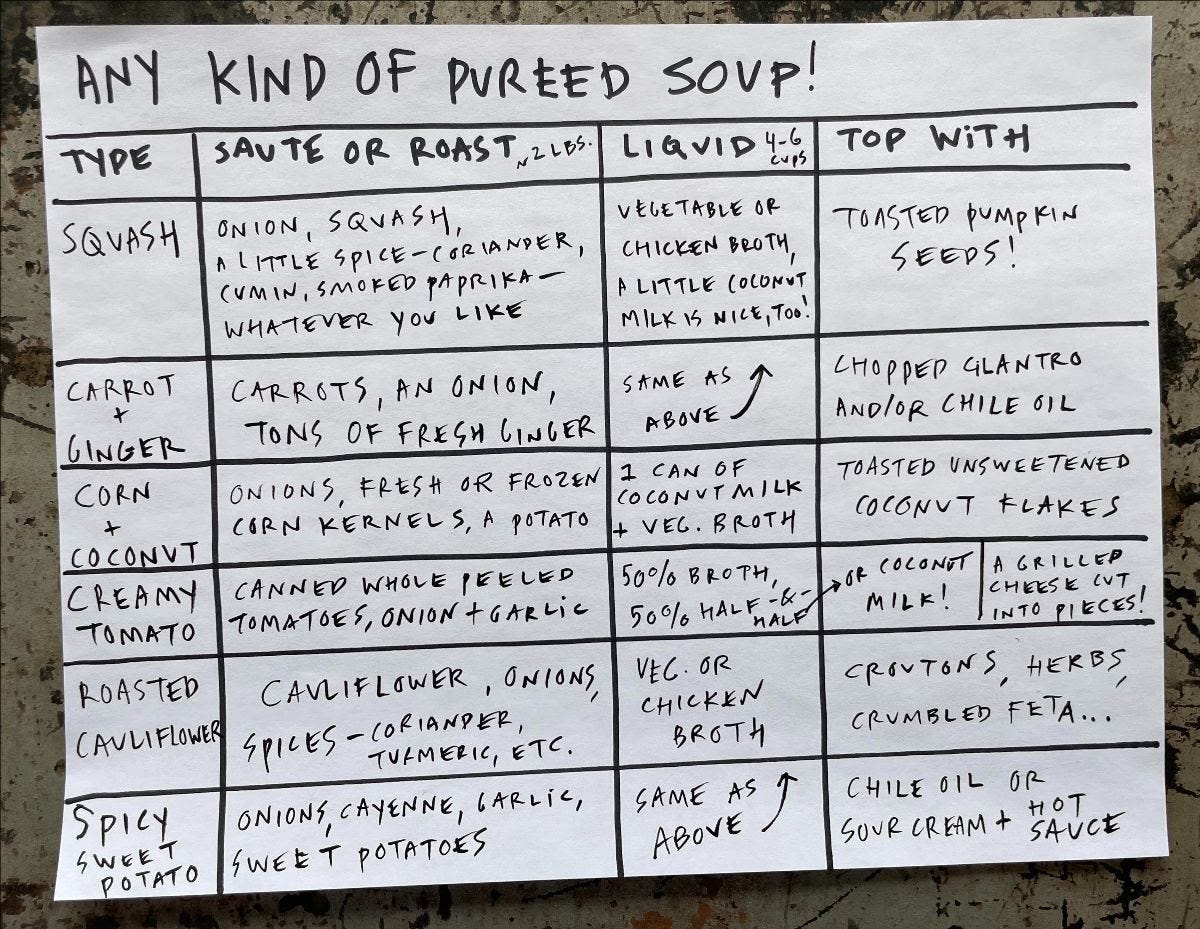 ANY KIND OF PUREED SOUP!
TYPE
SAUTE OR ROAST ~2 LBS.
LIQUID 4-6 CUPS
TOP WITH
SQUASH
ONION, SQUASH,
A LITTLE SPICE - CORIANDER,
CUMIN, SMOKED PAPRIKA -
WHATEVER YOU LIKE
VEGETABLE OR
CHICKEN BROTH,
A LITTLE COCONUT
MILK IS NICE, TOO!
TOASTED PUMPKIN
SEEDS!
CARROT
+
GINGER
CARROTS, AN ONION,
TONS OF FRESH GINGER
SAME AS
ABOVE
CHOPPED CILANTRO
AND/OR CHILE OIL
CORN
+
COCONUT
ONIONS, FRESH OR FROZEN
CORN KERNELS, A POTATO
1 CAN OF
COCONUT MILK
+ VEG. BROTH
TOASTED UNSWEETENED
COCONUT FLAKES
CREAMY
TOMATO
CANNED WHOLE PEELED
TOMATOES, ONION + GARLIC
50% BROTH,
50% HALF-&-
HALF
OR COCONUT
MILK!
A GRILLED
CHEESE CUT
INTO PIECES!
ROASTED
CAULIFLOWER
CAULIFLOWER, ONIONS,
SPICES - CORIANDER,
TURMERIC, ETC.
VEG. OR
CHICKEN
BROTH
CROUTONS, HERBS,
CRUMBLED FETA...
SPICY
SWEET
POTATO
ONIONS, CAYENNE, GARLIC,
SWEET POTATOES
SAME AS
ABOVE
CHILE OIL OR
SOUR CREAM + HOT
SAUCE